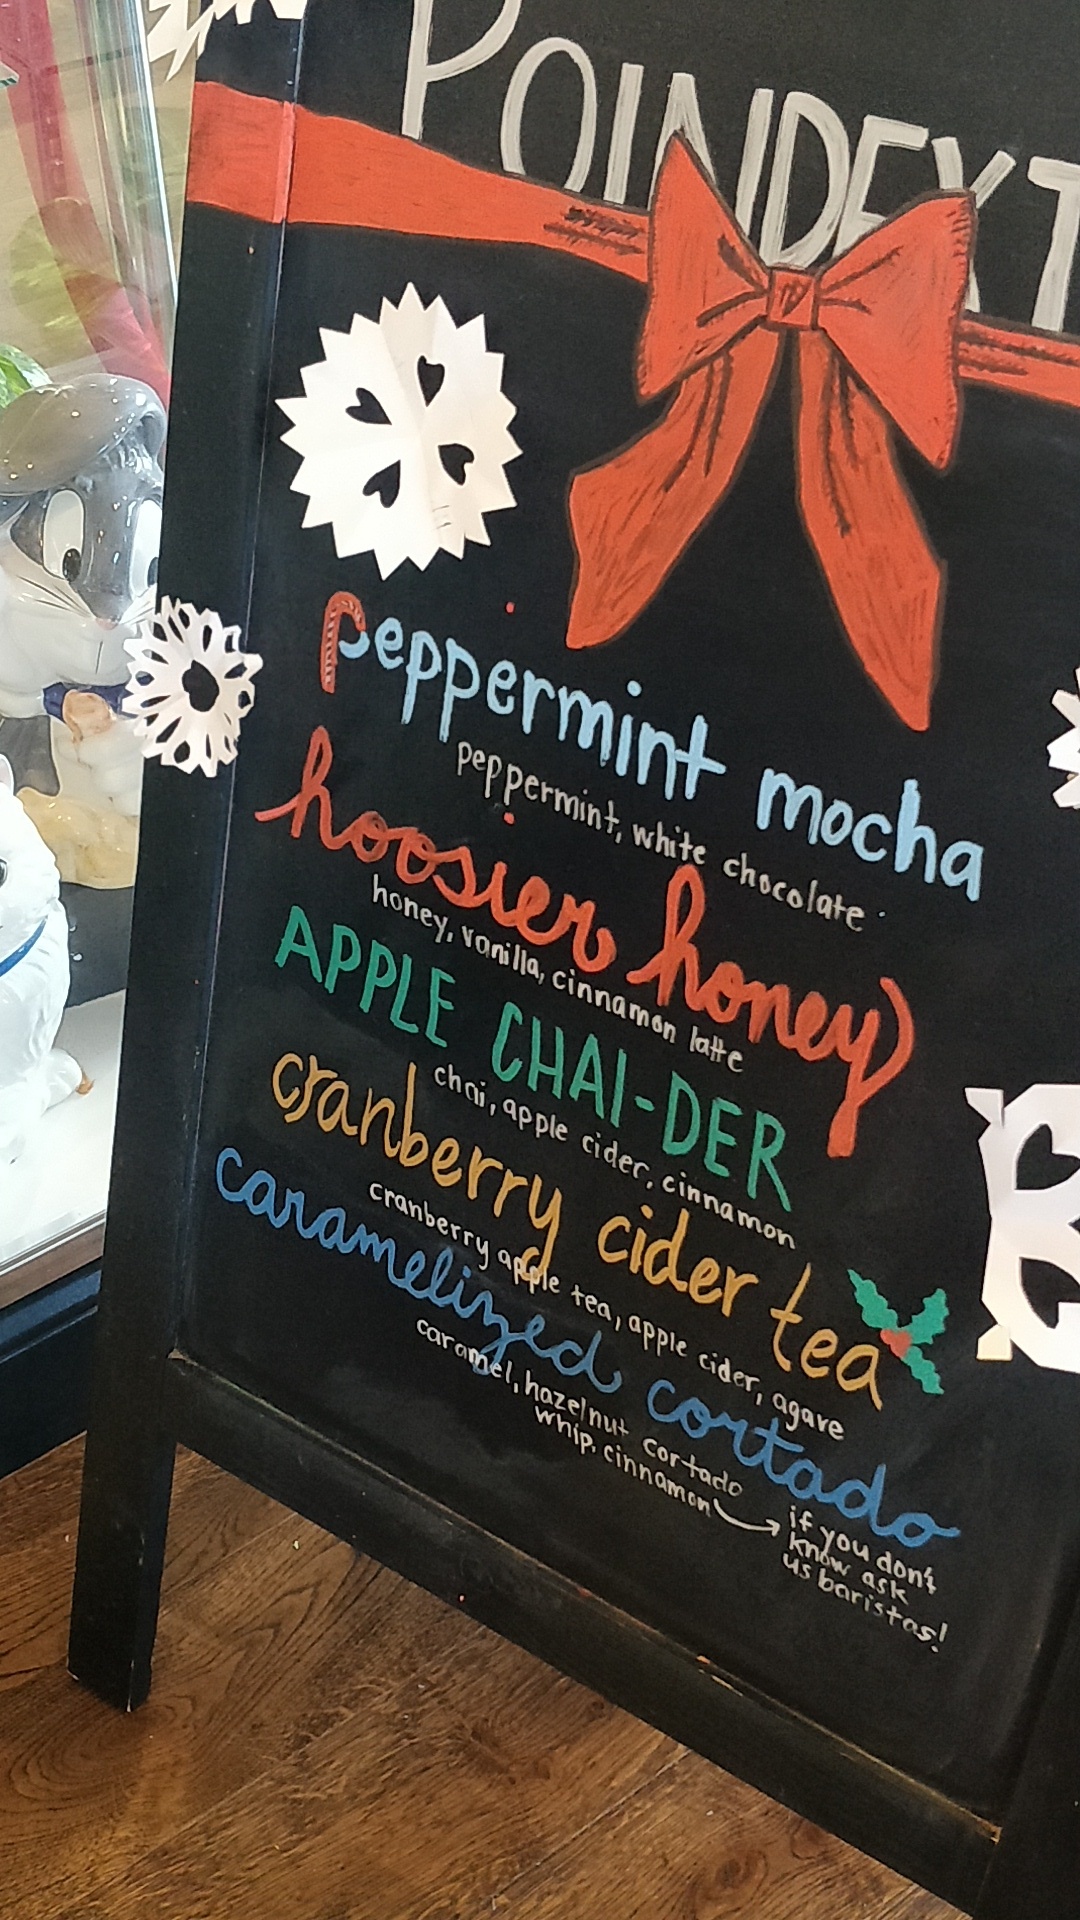 POINDEXT
peppermint mocha
peppermint, white chocolate
hoosier honey
honey, vanilla, cinnamon latte
APPLE CHAI-DER
chai, apple cider, cinnamon
cranberry cider tea
cranberry apple tea, apple cider, agave
caramelized cortado
caramel, hazelnut cortado
whip, cinnamon
if you don't
know ask
us baristas!